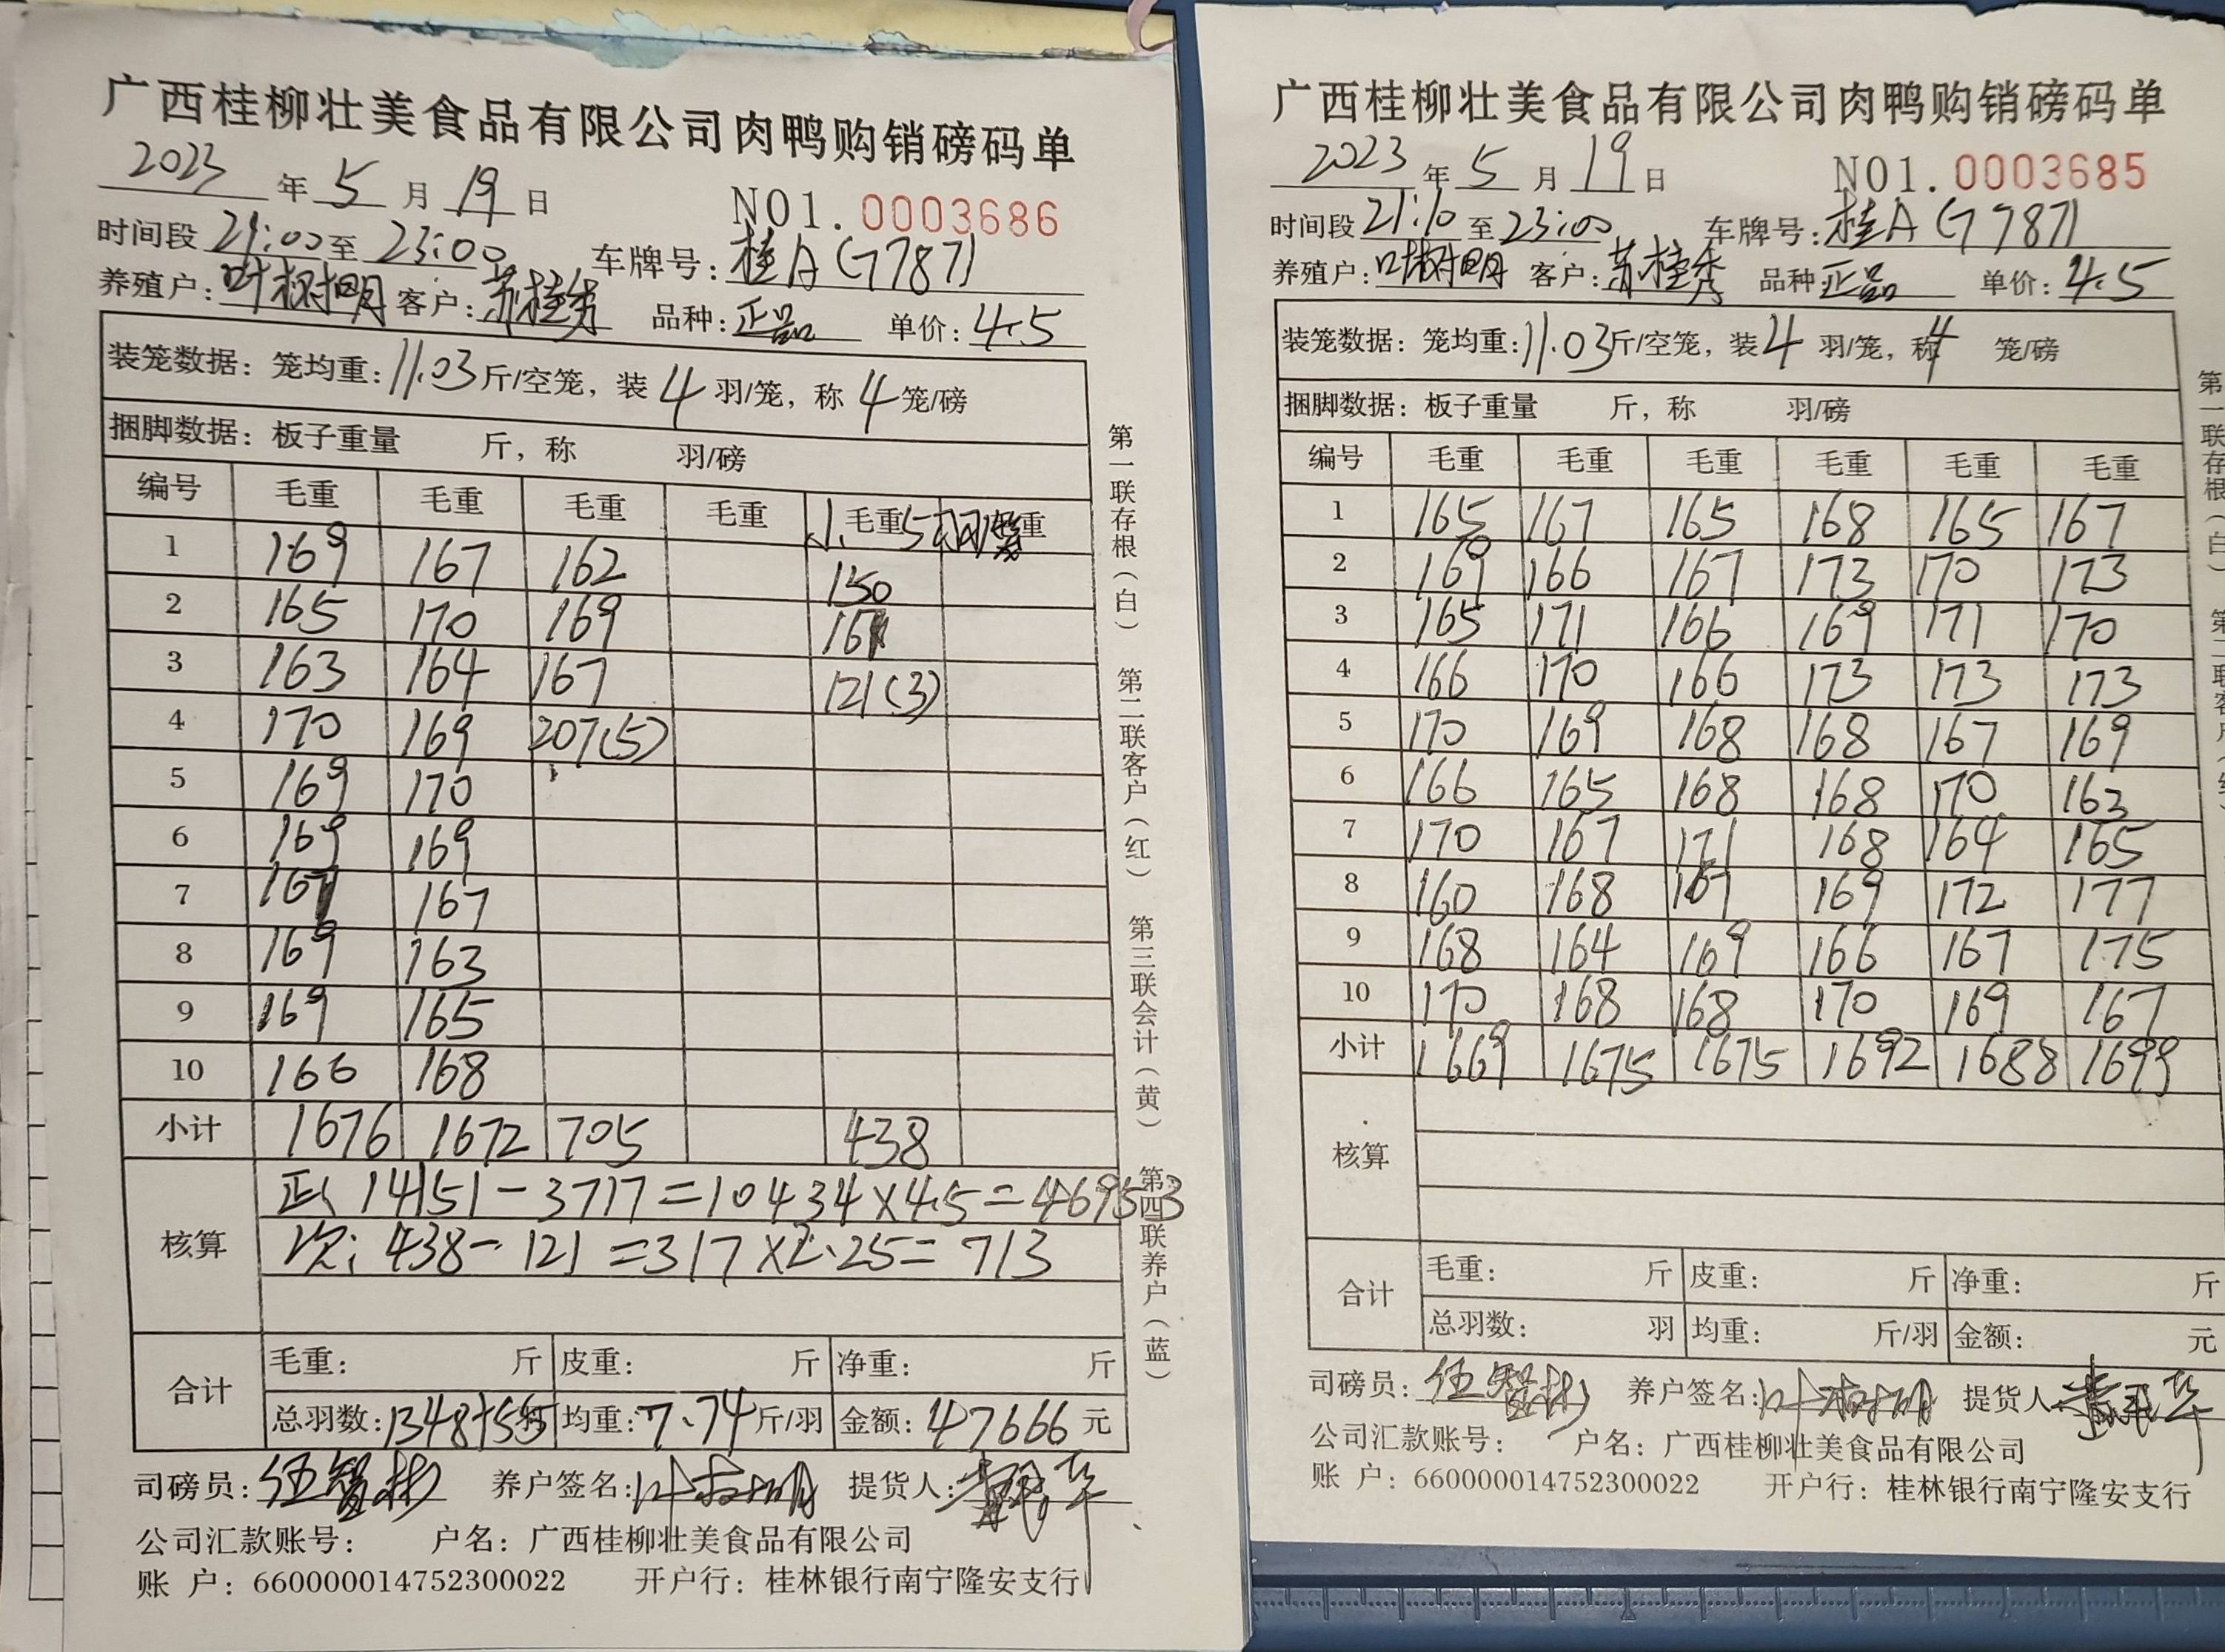 广西桂柳壮美食品有限公司肉鸭购销磅码单
2023 年 5 月 19 日 NO1.0003686
时间段 21:00 至 23:00 车牌号: 桂A(7787)
养殖户: 叶树明 客户: 苏桂秀 品种: 正品 单价: 4.5
装笼数据: 笼均重: 11.03 斤/空笼, 装 4 羽/笼, 称 4 笼/磅
捆脚数据: 板子重量 斤, 称 羽/磅
编号 毛重 毛重 毛重 毛重 毛重 毛重
1 169 167 162 150
2 165 170 169 167
3 163 164 167 121(3)
4 170 169 207(5)
5 169 170
6 169 169
7 167 167
8 169 163
9 169 165
10 166 168
小计 1676 1672 705 438
核算
正: 14151-3717=10434×4.5=46953
次: 438-121=317×2.25=713
合计
毛重: 斤 皮重: 斤 净重: 斤
总羽数: 1348+55 羽 均重: 7.74 斤/羽 金额: 47666 元
司磅员: 伍智彬 养户签名: 叶树明 提货人:
公司汇款账号: 户名: 广西桂柳壮美食品有限公司
账 户: 660000014752300022 开户行: 桂林银行南宁隆安支行
第一联存根(白) 第二联客户(红) 第三联会计(黄) 第四联养户(蓝)
广西桂柳壮美食品有限公司肉鸭购销磅码单
2023 年 5 月 19 日 NO1.0003685
时间段 21:10 至 23:00 车牌号: 桂A(7787)
养殖户: 叶树明 客户: 苏桂秀 品种: 正品 单价: 4.5
装笼数据: 笼均重: 11.03 斤/空笼, 装 4 羽/笼, 称 4 笼/磅
捆脚数据: 板子重量 斤, 称 羽/磅
编号 毛重 毛重 毛重 毛重 毛重 毛重
1 165 167 165 168 165 167
2 169 166 167 173 170 173
3 165 171 166 169 171 170
4 166 170 166 173 173 173
5 170 169 168 168 167 169
6 166 165 168 168 170 163
7 170 167 171 168 164 165
8 160 168 167 169 172 177
9 168 164 169 166 167 175
10 170 168 168 170 169 167
小计 1669 1675 1675 1692 1688 1699
核算
合计
毛重: 斤 皮重: 斤 净重: 斤
总羽数: 羽 均重: 斤/羽 金额: 元
司磅员: 伍智彬 养户签名: 叶树明 提货人:
公司汇款账号: 户名: 广西桂柳壮美食品有限公司
账 户: 660000014752300022 开户行: 桂林银行南宁隆安支行
第一联存根(白)